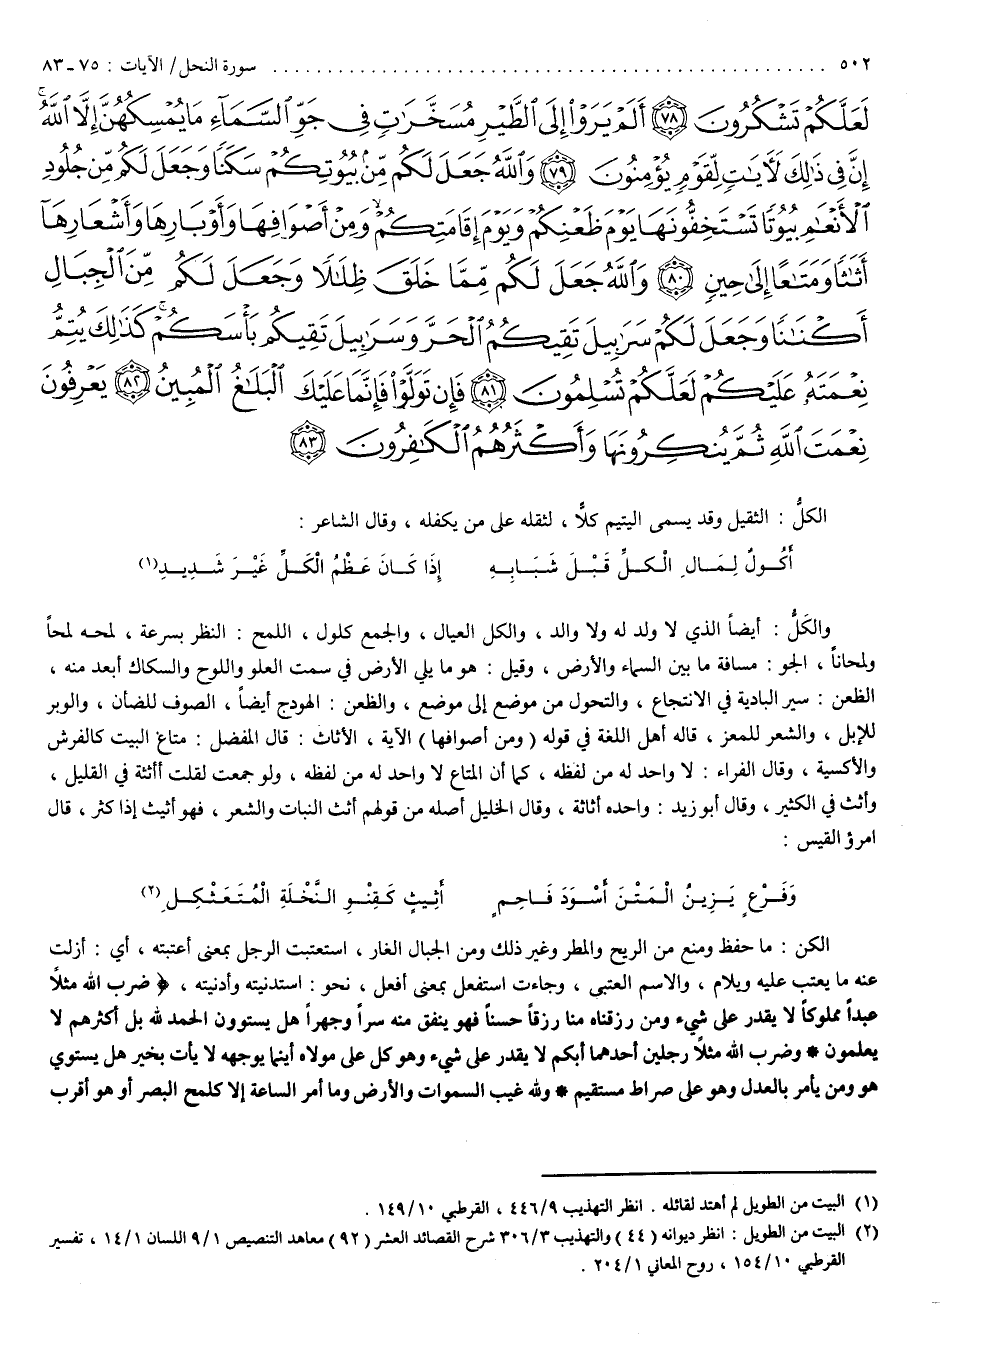 ٥٠٢ ........................................................ سورة النحل / الآيات : ٧٥ - ٨٣
لَعَلَّكُمْ تَشْكُرُونَ ﴿٧٨﴾ أَلَمْ يَرَوْا۟ إِلَى ٱلطَّيْرِ مُسَخَّرَٰتٍ فِى جَوِّ ٱلسَّمَآءِ مَا يُمْسِكُهُنَّ إِلَّا ٱللَّهُ ۗ
إِنَّ فِى ذَٰلِكَ لَـَٔايَٰتٍ لِّقَوْمٍ يُؤْمِنُونَ ﴿٧٩﴾ وَٱللَّهُ جَعَلَ لَكُم مِّنۢ بُيُوتِكُمْ سَكَنًا وَجَعَلَ لَكُم مِّن جُلُودِ
ٱلْأَنْعَٰمِ بُيُوتًا تَسْتَخِفُّونَهَا يَوْمَ ظَعْنِكُمْ وَيَوْمَ إِقَامَتِكُمْ ۙ وَمِنْ أَصْوَافِهَا وَأَوْبَارِهَا وَأَشْعَارِهَآ
أَثَٰثًا وَمَتَٰعًا إِلَىٰ حِينٍ ﴿٨٠﴾ وَٱللَّهُ جَعَلَ لَكُم مِّمَّا خَلَقَ ظِلَٰلًا وَجَعَلَ لَكُم مِّنَ ٱلْجِبَالِ
أَكْنَٰنًا وَجَعَلَ لَكُمْ سَرَٰبِيلَ تَقِيكُمُ ٱلْحَرَّ وَسَرَٰبِيلَ تَقِيكُم بَأْسَكُمْ ۚ كَذَٰلِكَ يُتِمُّ
نِعْمَتَهُۥ عَلَيْكُمْ لَعَلَّكُمْ تُسْلِمُونَ ﴿٨١﴾ فَإِن تَوَلَّوْا۟ فَإِنَّمَا عَلَيْكَ ٱلْبَلَٰغُ ٱلْمُبِينُ ﴿٨٢﴾ يَعْرِفُونَ
نِعْمَتَ ٱللَّهِ ثُمَّ يُنكِرُونَهَا وَأَكْثَرُهُمُ ٱلْكَٰفِرُونَ ﴿٨٣﴾
الكلُّ : الثقيل وقد يسمى اليتيم كلًّا ، لثقله على من يكفله ، وقال الشاعر :
أَكُولٌ لِمَالِ الْكلِّ قَبْلَ شَبَابِهِ إِذَا كَانَ عَظْمُ الْكَلِّ غَيْرَ شَدِيدِ(١)
والكَلُّ : أيضاً الذي لا ولد له ولا والد ، والكل العيال ، والجمع كلول ، اللمح : النظر بسرعة ، لمحه لمحاً
ولمحاناً ، الجو : مسافة ما بين السماء والأرض ، وقيل : هو ما يلي الأرض في سمت العلو واللوح والسكاك أبعد منه ،
الظعن : سير البادية في الانتجاع ، والتحول من موضع إلى موضع ، والظعن : الهودج أيضاً ، الصوف للضأن ، والوبر
للإبل ، والشعر للمعز ، قاله أهل اللغة في قوله ( ومن أصوافها ) الآية ، الأثاث : قال المفضل : متاع البيت كالفرش
والأكسية ، وقال الفراء : لا واحد له من لفظه ، كما أن المتاع لا واحد له من لفظه ، ولو جمعت لقلت أأثثة في القليل ،
وأثث في الكثير ، وقال أبو زيد : واحده أثاثة ، وقال الخليل أصله من قولهم أثث النبات والشعر ، فهو أثيث إذا كثر ، قال
امرؤ القيس :
وَفَرْعٍ يَزِينُ الْمَتْنَ أَسْوَدَ فَاحِمٍ أَثِيثٍ كَقِنْوِ النَّخْلَةِ الْمُتَعَثْكِلِ(٢)
الكن : ما حفظ ومنع من الريح والمطر وغير ذلك ومن الجبال الغار ، استعتبت الرجل بمعنى أعتبته ، أي : أزلت
عنه ما يعتب عليه ويلام ، والاسم العتبى ، وجاءت استفعل بمعنى أفعل ، نحو : استدنيته وأدنيته ، ﴿ ضرب الله مثلًا
عبداً مملوكاً لا يقدر على شيء ومن رزقناه منا رزقاً حسناً فهو ينفق منه سراً وجهراً هل يستوون الحمد لله بل أكثرهم لا
يعلمون * وضرب الله مثلًا رجلين أحدهما أبكم لا يقدر على شيء وهو كل على مولاه أينما يوجهه لا يأت بخير هل يستوي
هو ومن يأمر بالعدل وهو على صراط مستقيم * ولله غيب السموات والأرض وما أمر الساعة إلا كلمح البصر أو هو أقرب
(١) البيت من الطويل لم أهتد لقائله . انظر التهذيب ٤٤٦/٩ ، القرطبي ١٤٩/١٠ .
(٢) البيت من الطويل : انظر ديوانه ( ٤٤ ) والتهذيب ٣٠٦/٣ شرح القصائد العشر ( ٩٢ ) معاهد التنصيص ٩/١ اللسان ١٤/١ ، تفسير
القرطبي ١٥٤/١٠ ، روح المعاني ٢٠٤/١ .